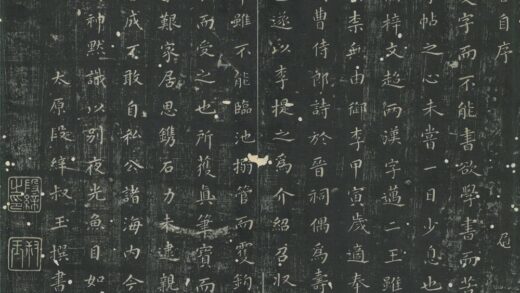 自序
文字而不能書欲學書而苦
帖之心未嘗一日少息也
梓文起而漢字邁二王雖
素由御李甲寅歲適奉
曹侍郎詩於晉祠偶為壽
遂以李提之為介紹召收
雖不能臨池搦管而霞鈎
而受之也所獲真筆實而
艱家居思鐫石力未逮親
成不敢自私公諸海內今
神默識以別夜光魚目如
太原段綘叔玉撰書
段綘之印
叔玉